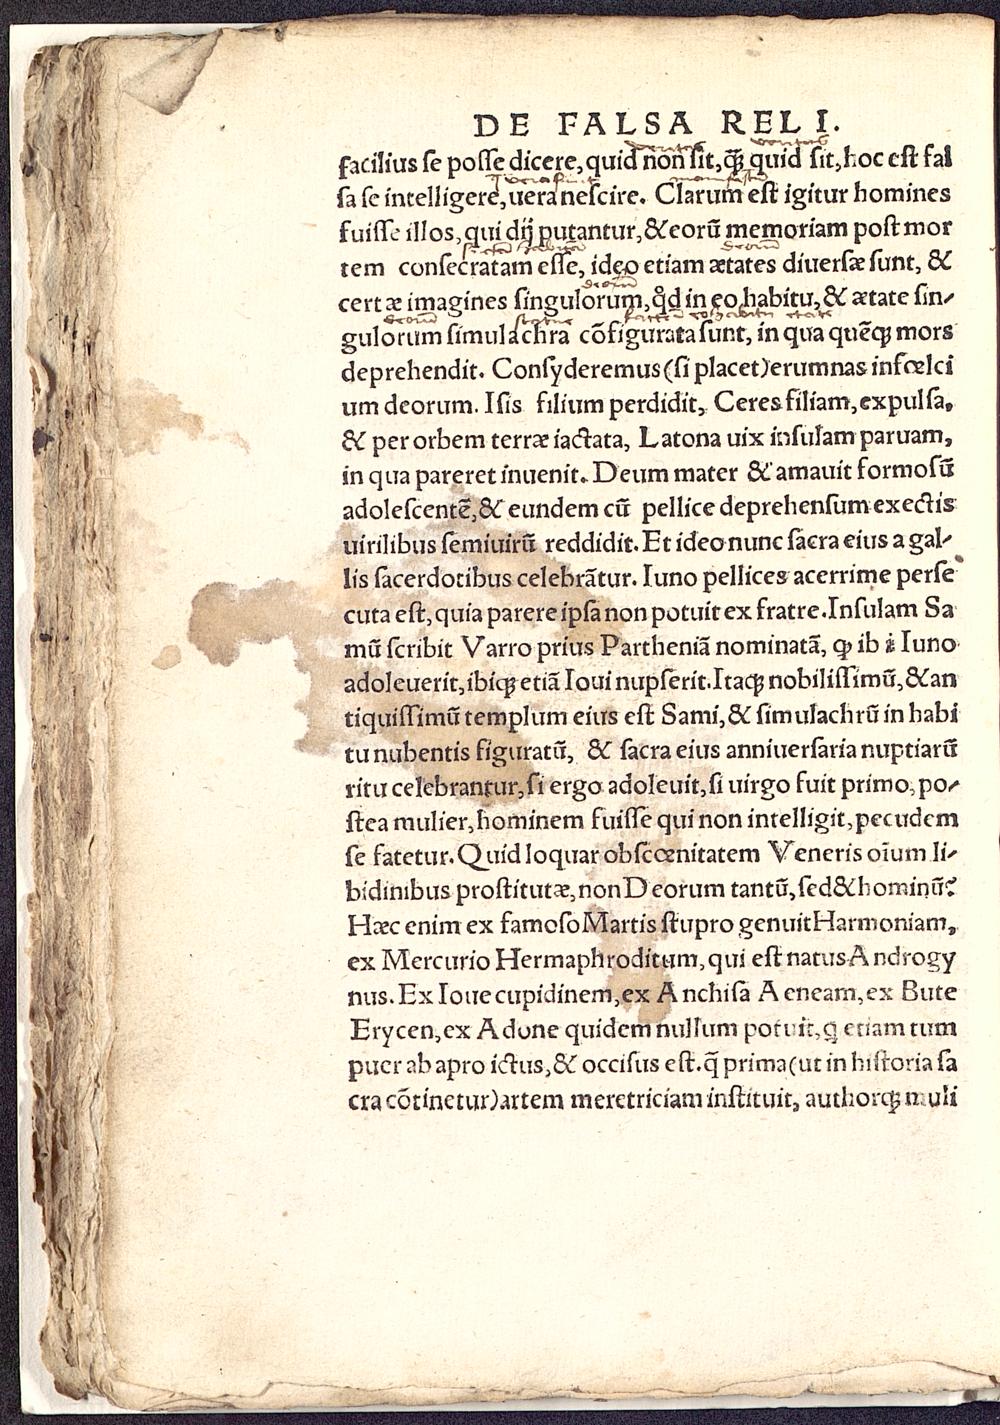 DE FALSA RELI.
facilius se posse dicere, quid non sit, q̃ꝫ quid sit, hoc est fal
veritas veritas
sa se intelligere, uera nescire. Clarum est igitur homines
fuisse illos, qui dij putantur, & eorũ memoriam post mor
tem consecratam esse, ideo etiam ætates diuersæ sunt, &
deorũ
certæ imagines singulorum, q̊d in eo habitu, & ætate sin-
deorũ
gulorum simulachra cõfigurata sunt, in qua quẽqꝫ mors
deorũ statue
deprehendit. Consyderemus (si placet) erumnas infœlci
um deorum. Isis filium perdidit, Ceres filiam, expulsa,
& per orbem terræ iactata, Latona uix insulam paruam,
in qua pareret inuenit. Deum mater & amauit formosũ
adolescentẽ, & eundem cũ pellice deprehensum exectis
uirilibus semiuirũ reddidit. Et ideo nunc sacra eius a gal-
lis sacerdotibus celebrãtur. Iuno pellices acerrime perse
cuta est, quia parere ipsa non potuit ex fratre. Insulam Sa
mũ scribit Varro prius Partheniã nominatã, ꝙ ibi Iuno
adoleuerit, ibiqꝫ etiã Ioui nupserit. Itaqꝫ nobilissimũ, & an
tiquissimũ templum eius est Sami, & simulachrũ in habi
tu nubentis figuratũ, & sacra eius anniuersaria nuptiarũ
ritu celebrantur, si ergo adoleuit, si uirgo fuit primo, po-
stea mulier, hominem fuisse qui non intelligit, pecudem
se fatetur. Quid loquar obscœnitatem Veneris oĩum li-
bidinibus prostitutæ, non Deorum tantũ, sed & hominũ?
Hæc enim ex famoso Martis stupro genuit Harmoniam,
ex Mercurio Hermaphroditum, qui est natus Androgy
nus. Ex Ioue cupidinem, ex Anchisa Aeneam, ex Bute
Erycen, ex Adone quidem nullum potuit, q etiam tum
puer ab apro ictus, & occisus est. q̃ prima (ut in historia sa
cra cõtinetur) artem meretriciam instituit, authorqꝫ muli